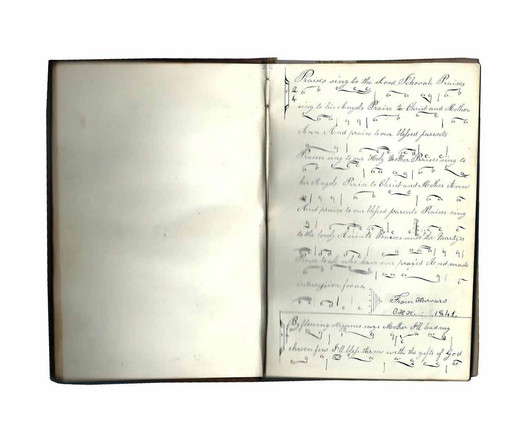 Praises sing to the Lord Jehovah Praises
sing to his Angels Praise to Christ and Mother
Ann And praise to our blessed parents
Praises sing to our Holy Mother Praises sing to
her Angels Praise to Christ and Mother Ann
And praise to our blessed parents Praises sing
to the lovely Praises unto the Martyrs
Praise to all who have and made
intercession for us
From
1841
By flowing streams says Mother I'll lead my
chosen few I'll bless them with the gifts of God